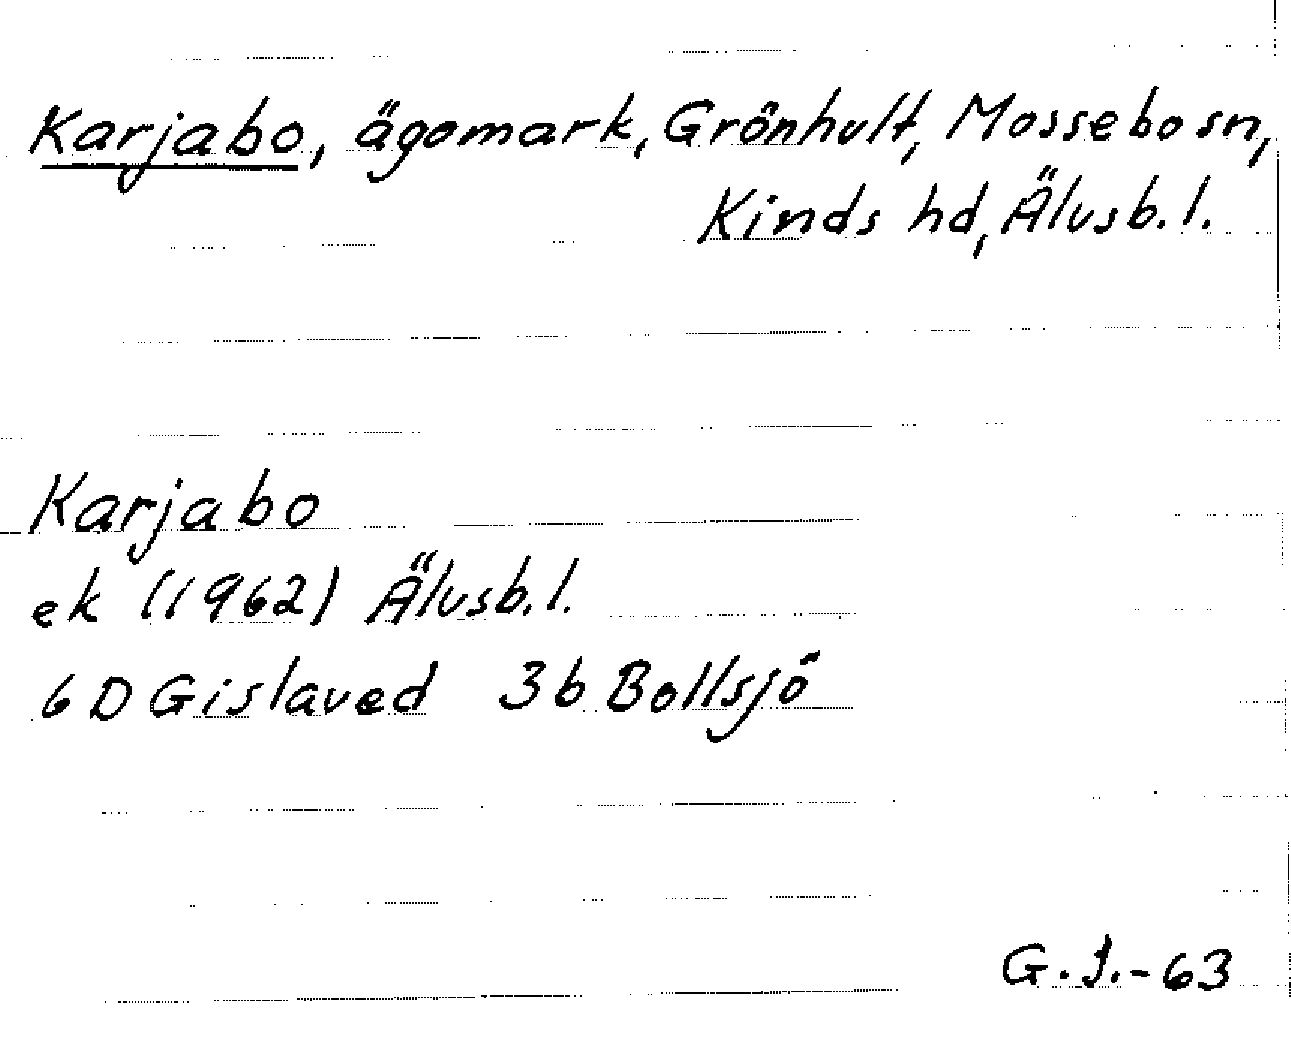 Karjabo, ägomark, Grönhult, Mossebo sn,
Kinds hd, Älvsb. l.
Karjabo
ek (1962) Älvsb. l.
6 D Gislaved 3b Bollsjö
G. J. - 63